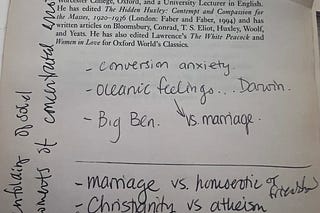 Worcester College, Oxford, and a University Lecturer in English.
He has edited The Hidden Huxley: Contempt and Compassion for
the Masses, 1920–1936 (London: Faber and Faber, 1994) and has
written articles on Bloomsbury, Conrad, T. S. Eliot, Huxley, Woolf,
and Yeats. He has also edited Lawrence's The White Peacock and
Women in Love for Oxford World's Classics.
- conversion anxiety.
- oceanic feelings... Darwin.
- Big Ben. vs. marriage.
- marriage vs. homoerotic friendship
- Christianity vs atheism
unfolding of soul
moments of concentrated